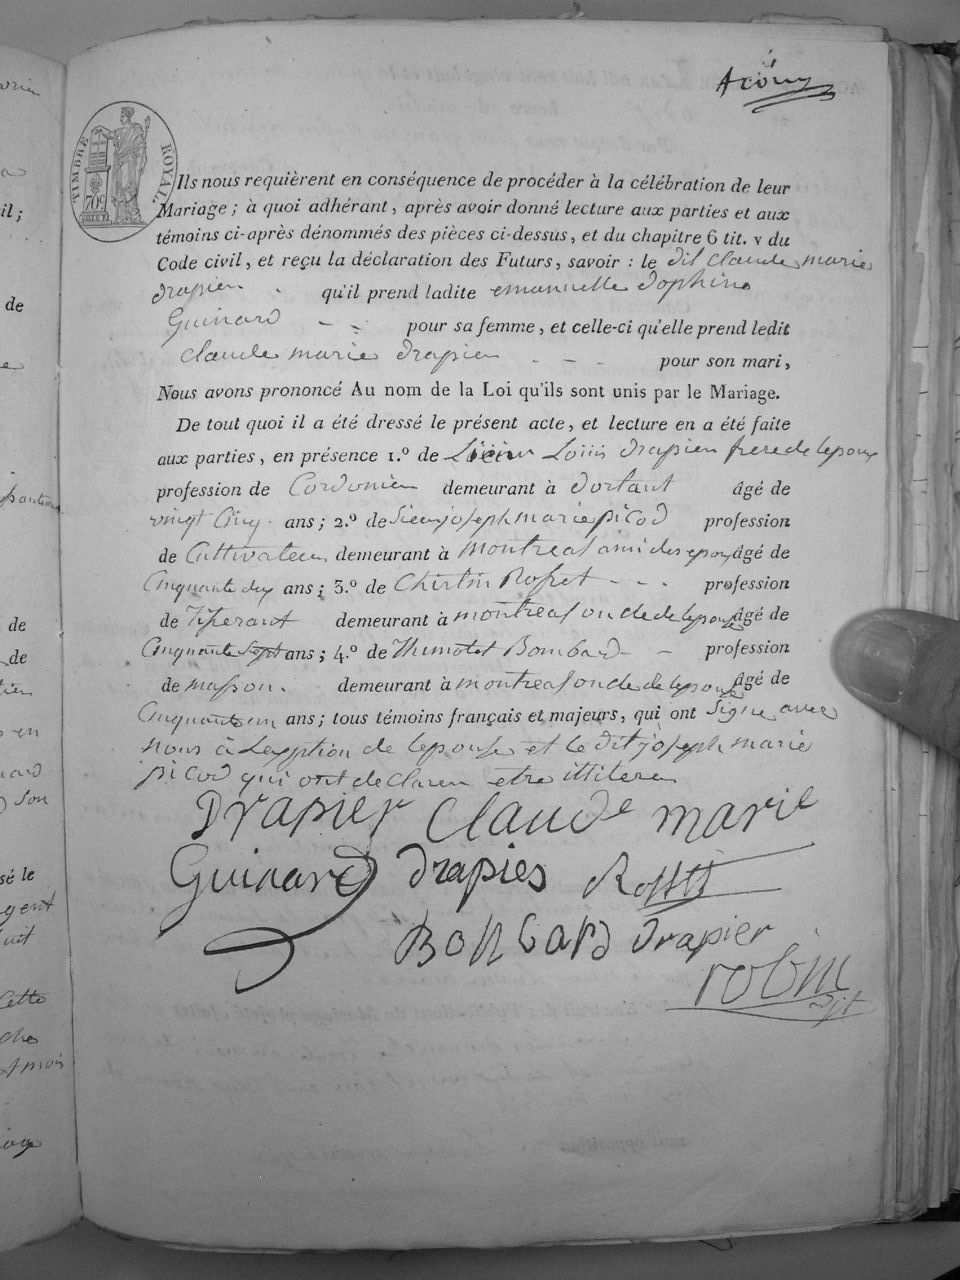 TIMBRE ROYAL.
Ils nous requièrent en conséquence de procéder à la célébration de leur
Mariage ; à quoi adhérant, après avoir donné lecture aux parties et aux
témoins ci-après dénommés des pièces ci-dessus, et du chapitre 6 tit. v du
Code civil, et reçu la déclaration des Futurs, savoir : le dit Claude marie
drapier qu'il prend ladite emanuelle dophine
Guinard pour sa femme, et celle-ci qu'elle prend ledit
Claude marie drapier pour son mari,
Nous avons prononcé Au nom de la Loi qu'ils sont unis par le Mariage.
De tout quoi il a été dressé le présent acte, et lecture en a été faite
aux parties, en présence 1.º de Louis drapier frere de lepoux
profession de Cordonier demeurant à dortant âgé de
vingt Cinq ans ; 2.º de Sieur joseph marie picod profession
de Cultivateur demeurant à montreal ami des epoux âgé de
Cinquante deux ans ; 3.º de profession
de Tisserant demeurant à montreal oncle de lepouse âgé de
Cinquante Sept ans ; 4.º de Thimotet Bombard profession
de masson. demeurant à montreal oncle de lepouse âgé de
Cinquante un ans ; tous témoins français et majeurs, qui ont Signe avec
nous à Lexption de lepouse et le dit joseph marie
picod qui ont declarer etre illitere
Drapier Claude marie
Guinard drapies
Bonbard drapier
robin